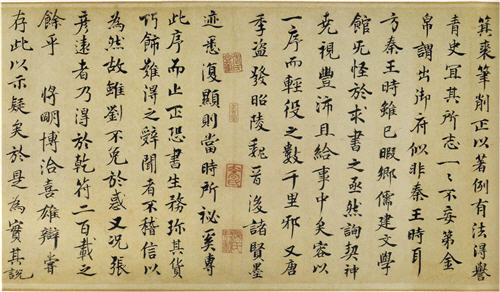 箕来筆削正以著例有法得譽
青史冝其所志一々不妄第金
帛謂出御府似非秦王時耳
方秦王時雖已暇鄉儒建文學
館旡怪於求書之亟然詢契神
堯視豐沛且給事中矣容以
一序而輕役之數千里邪又唐
季盜發昭陵魏晉後諸賢墨
迹悉復顯則當時所祕奚專
此序而止正恐書生務珎其貨
巧飾難得之辭聞者不稽信以
為然故雖劉不免於惑又況張
彦遠者乃得於乾符二百載之
餘乎 將明博洽喜雄辯嘗
存此以示疑矣於是為實其説